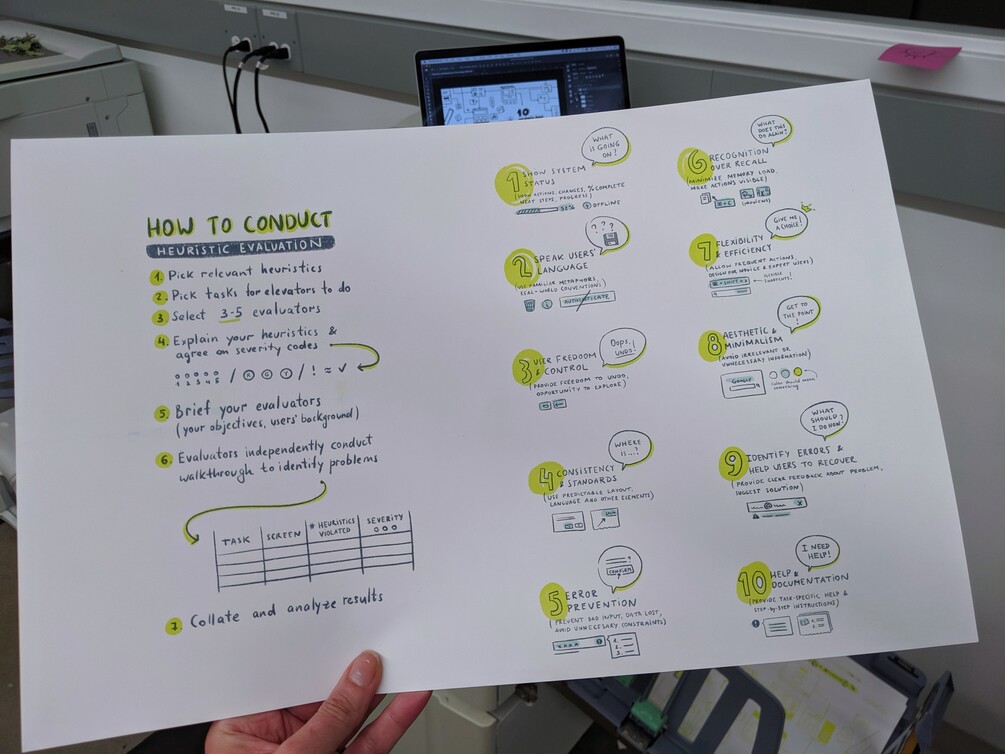 HOW TO CONDUCT
HEURISTIC EVALUATION
1. Pick relevant heuristics
2. Pick tasks for elevators to do
3. Select 3-5 evaluators
4. Explain your heuristics &
agree on severity codes
1 2 3 4 5 / R G Y / ! ≈ ✓
5. Brief your evaluators
(your objectives, users' background)
6. Evaluators independently conduct
walkthrough to identify problems
TASK
SCREEN
# HEURISTICS
VIOLATED
SEVERITY
7. Collate and analyze results
WHAT
IS GOING
ON?
1 SHOW SYSTEM
STATUS
(SHOW ACTIONS, CHANGES, % COMPLETE
NEXT STEPS, PROGRESS)
OFFLINE
? ? ?
2 SPEAK USERS'
LANGUAGE
(USE FAMILIAR METAPHORS,
REAL-WORLD CONVENTIONS)
AUTHENTICATE
Oops,
UNDO!
3 USER FREEDOM
& CONTROL
(PROVIDE FREEDOM TO UNDO,
OPPORTUNITY TO EXPLORE)
WHERE
IS ...?
4 CONSISTENCY
& STANDARDS
(USE PREDICTABLE LAYOUT,
LANGUAGE AND OTHER ELEMENTS)
CONFIRM
5 ERROR
PREVENTION
(PREVENT BAD INPUT, DATA LOST,
AVOID UNNECESSARY CONSTRAINTS)
1.
2.
3.
WHAT
DOES THIS
DO AGAIN?
6 RECOGNITION
OVER RECALL
(MINIMIZE MEMORY LOAD,
MAKE ACTIONS VISIBLE)
(PREVIEWS)
GIVE ME
A CHOICE!
7 FLEXIBILITY
& EFFICIENCY
(ALLOW FREQUENT ACTIONS,
DESIGN FOR NOVICE & EXPERT USERS)
GET TO
THE POINT
!
8 AESTHETIC &
MINIMALISM
(AVOID IRRELEVANT OR
UNNECESSARY INFORMATION)
GOOGLE
Color should mean
something
WHAT
SHOULD
I DO NOW?
9 IDENTIFY ERRORS &
HELP USERS TO RECOVER
(PROVIDE CLEAR FEEDBACK ABOUT PROBLEM,
SUGGEST SOLUTION)
I NEED
HELP!
10 HELP &
DOCUMENTATION
(PROVIDE TASK-SPECIFIC HELP &
STEP-BY-STEP INSTRUCTIONS)
10